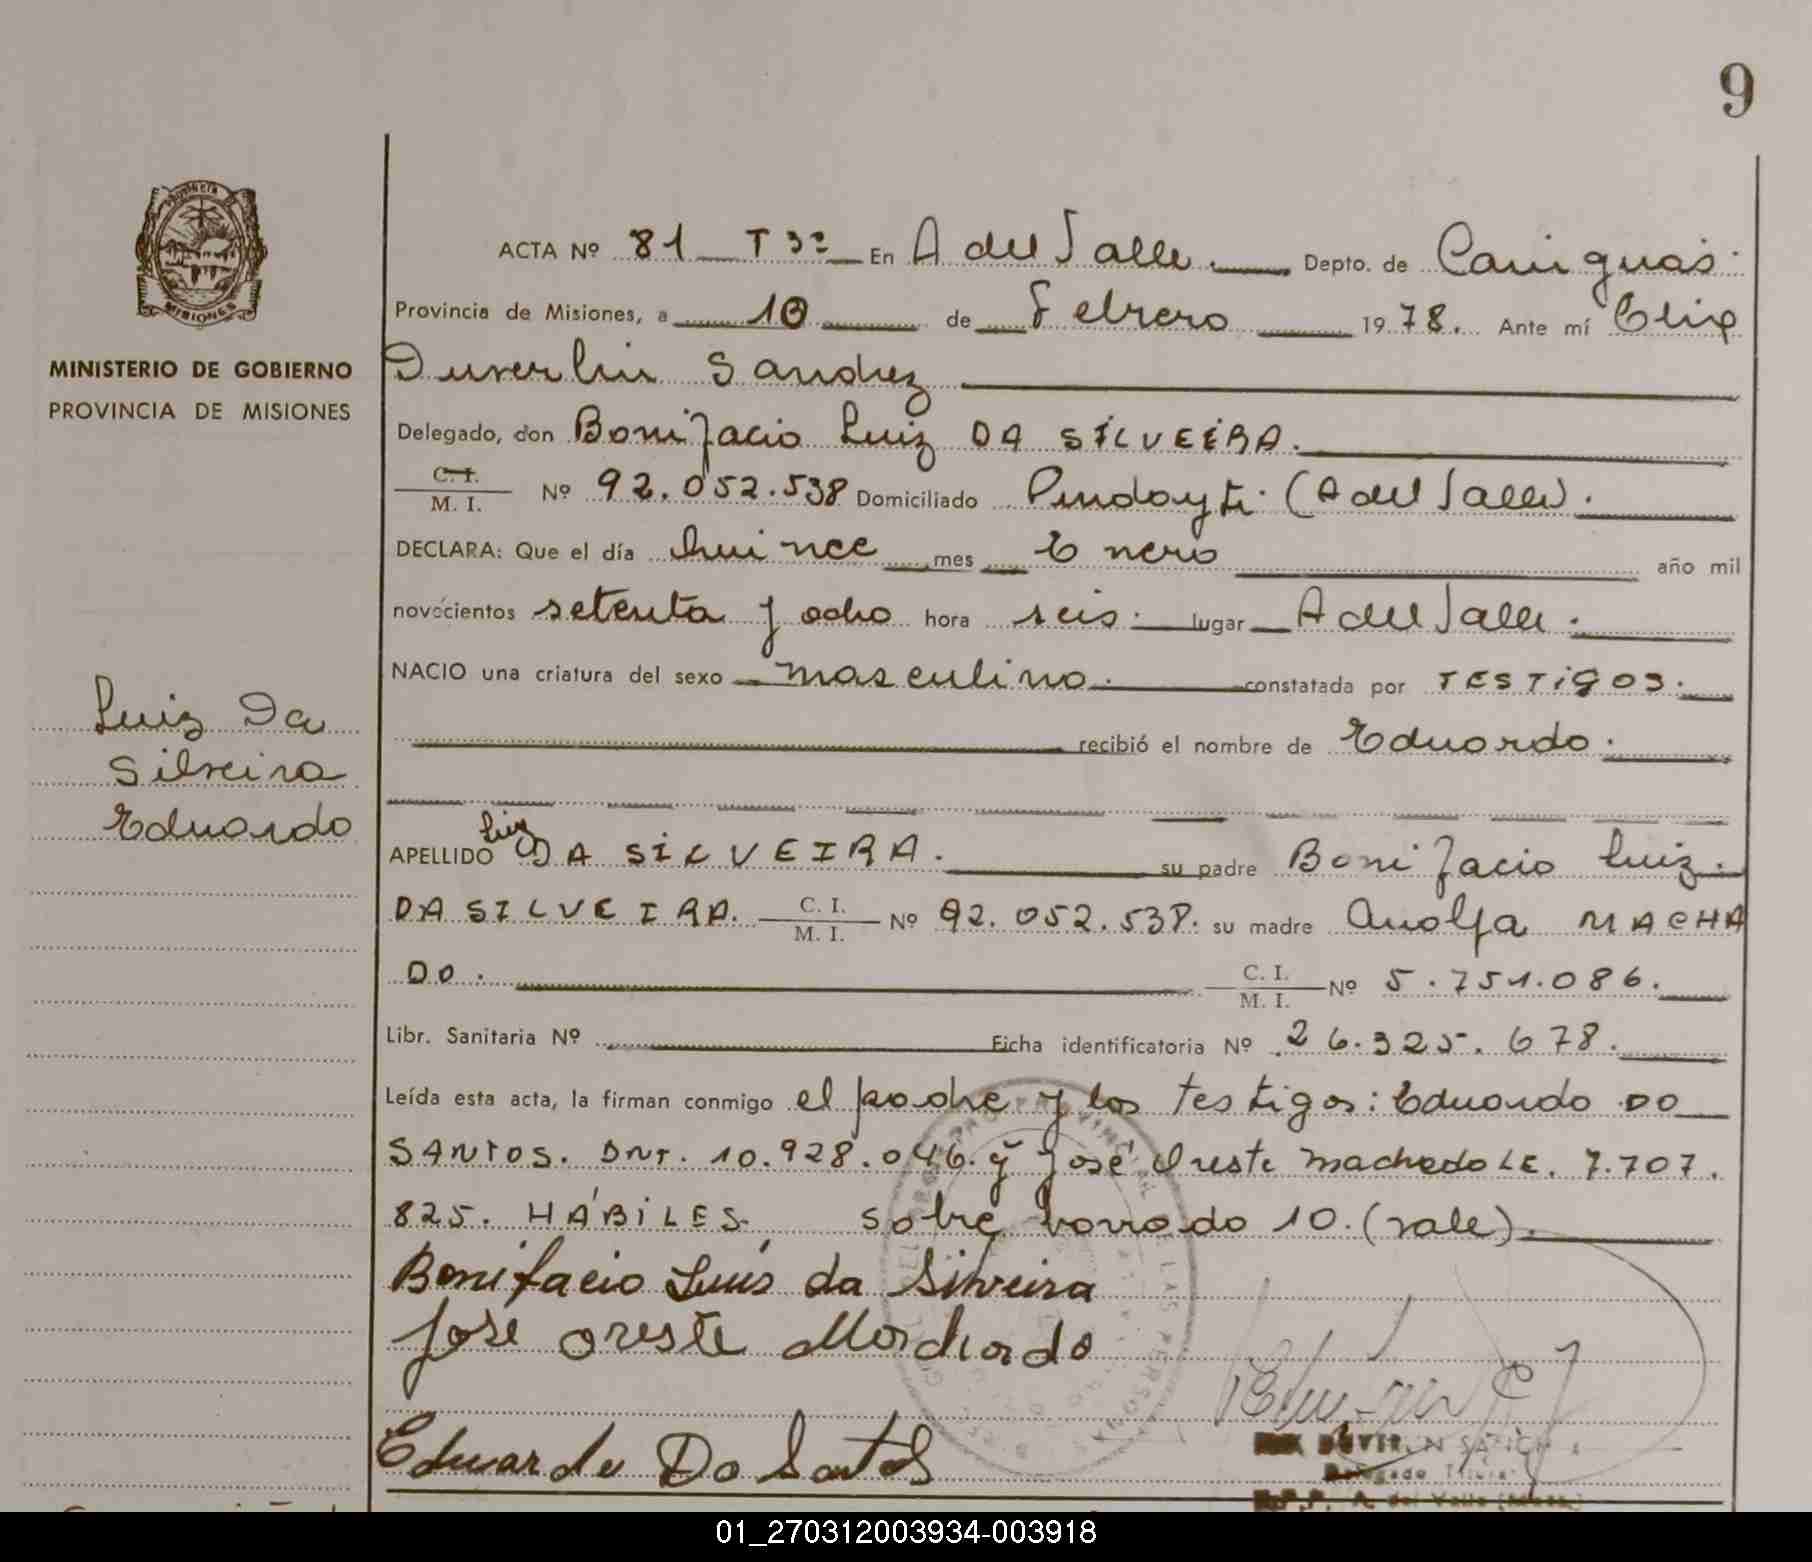 9
Provincia
MISIONES
MINISTERIO DE GOBIERNO
PROVINCIA DE MISIONES
Luiz Da
Silveira
Eduardo
ACTA Nº 81 T 3º En A del Valle. Depto. de Cainguás.
Provincia de Misiones, a 10 de Febrero 1978. Ante mí
Sanchez
Delegado, don Bonifacio Luiz DA SILVEIRA.
C. I. / M. I. Nº 92.052.538 Domiciliado Pindayti. (A del Valle).
DECLARA: Que el día quince mes Enero año mil
novecientos setenta y ocho hora seis. lugar A del Valle.
NACIO una criatura del sexo masculino. constatada por TESTIGOS.
recibió el nombre de Eduardo.
APELLIDO Luiz DA SILVEIRA. su padre Bonifacio Luiz.
DA SILVEIRA. C. I. / M. I. Nº 92.052.538. su madre MACHA
DO. C. I. / M. I. Nº 5.751.086.
Libr. Sanitaria Nº Ficha identificatoria Nº 26.325.678.
Leída esta acta, la firman conmigo el padre y los testigos: Eduardo DO
SANTOS. DNI. 10.928.046. y José Oreste Machado LE. 7.707.
825. HÁBILES. Sobre borrado 10. (vale).
Bonifacio Luís da Silveira
José Oreste Machado
Eduardo Do Santos
Delegado Titular
A. del Valle
01_270312003934-003918